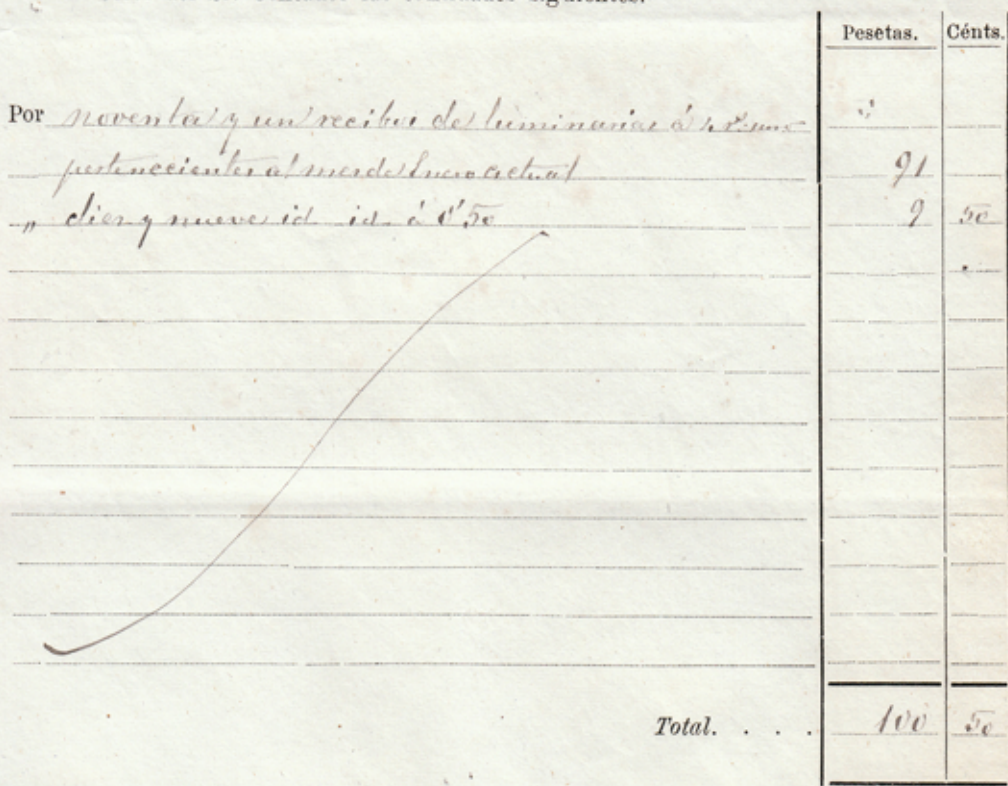 siguientes.
Pesetas. Cénts.
Por noventa y un recibos de luminarias á
pertenecientes al mes de Enero actual 91
„ diez y nueve id id á 0'50 9 50
Total. . . . 100 50